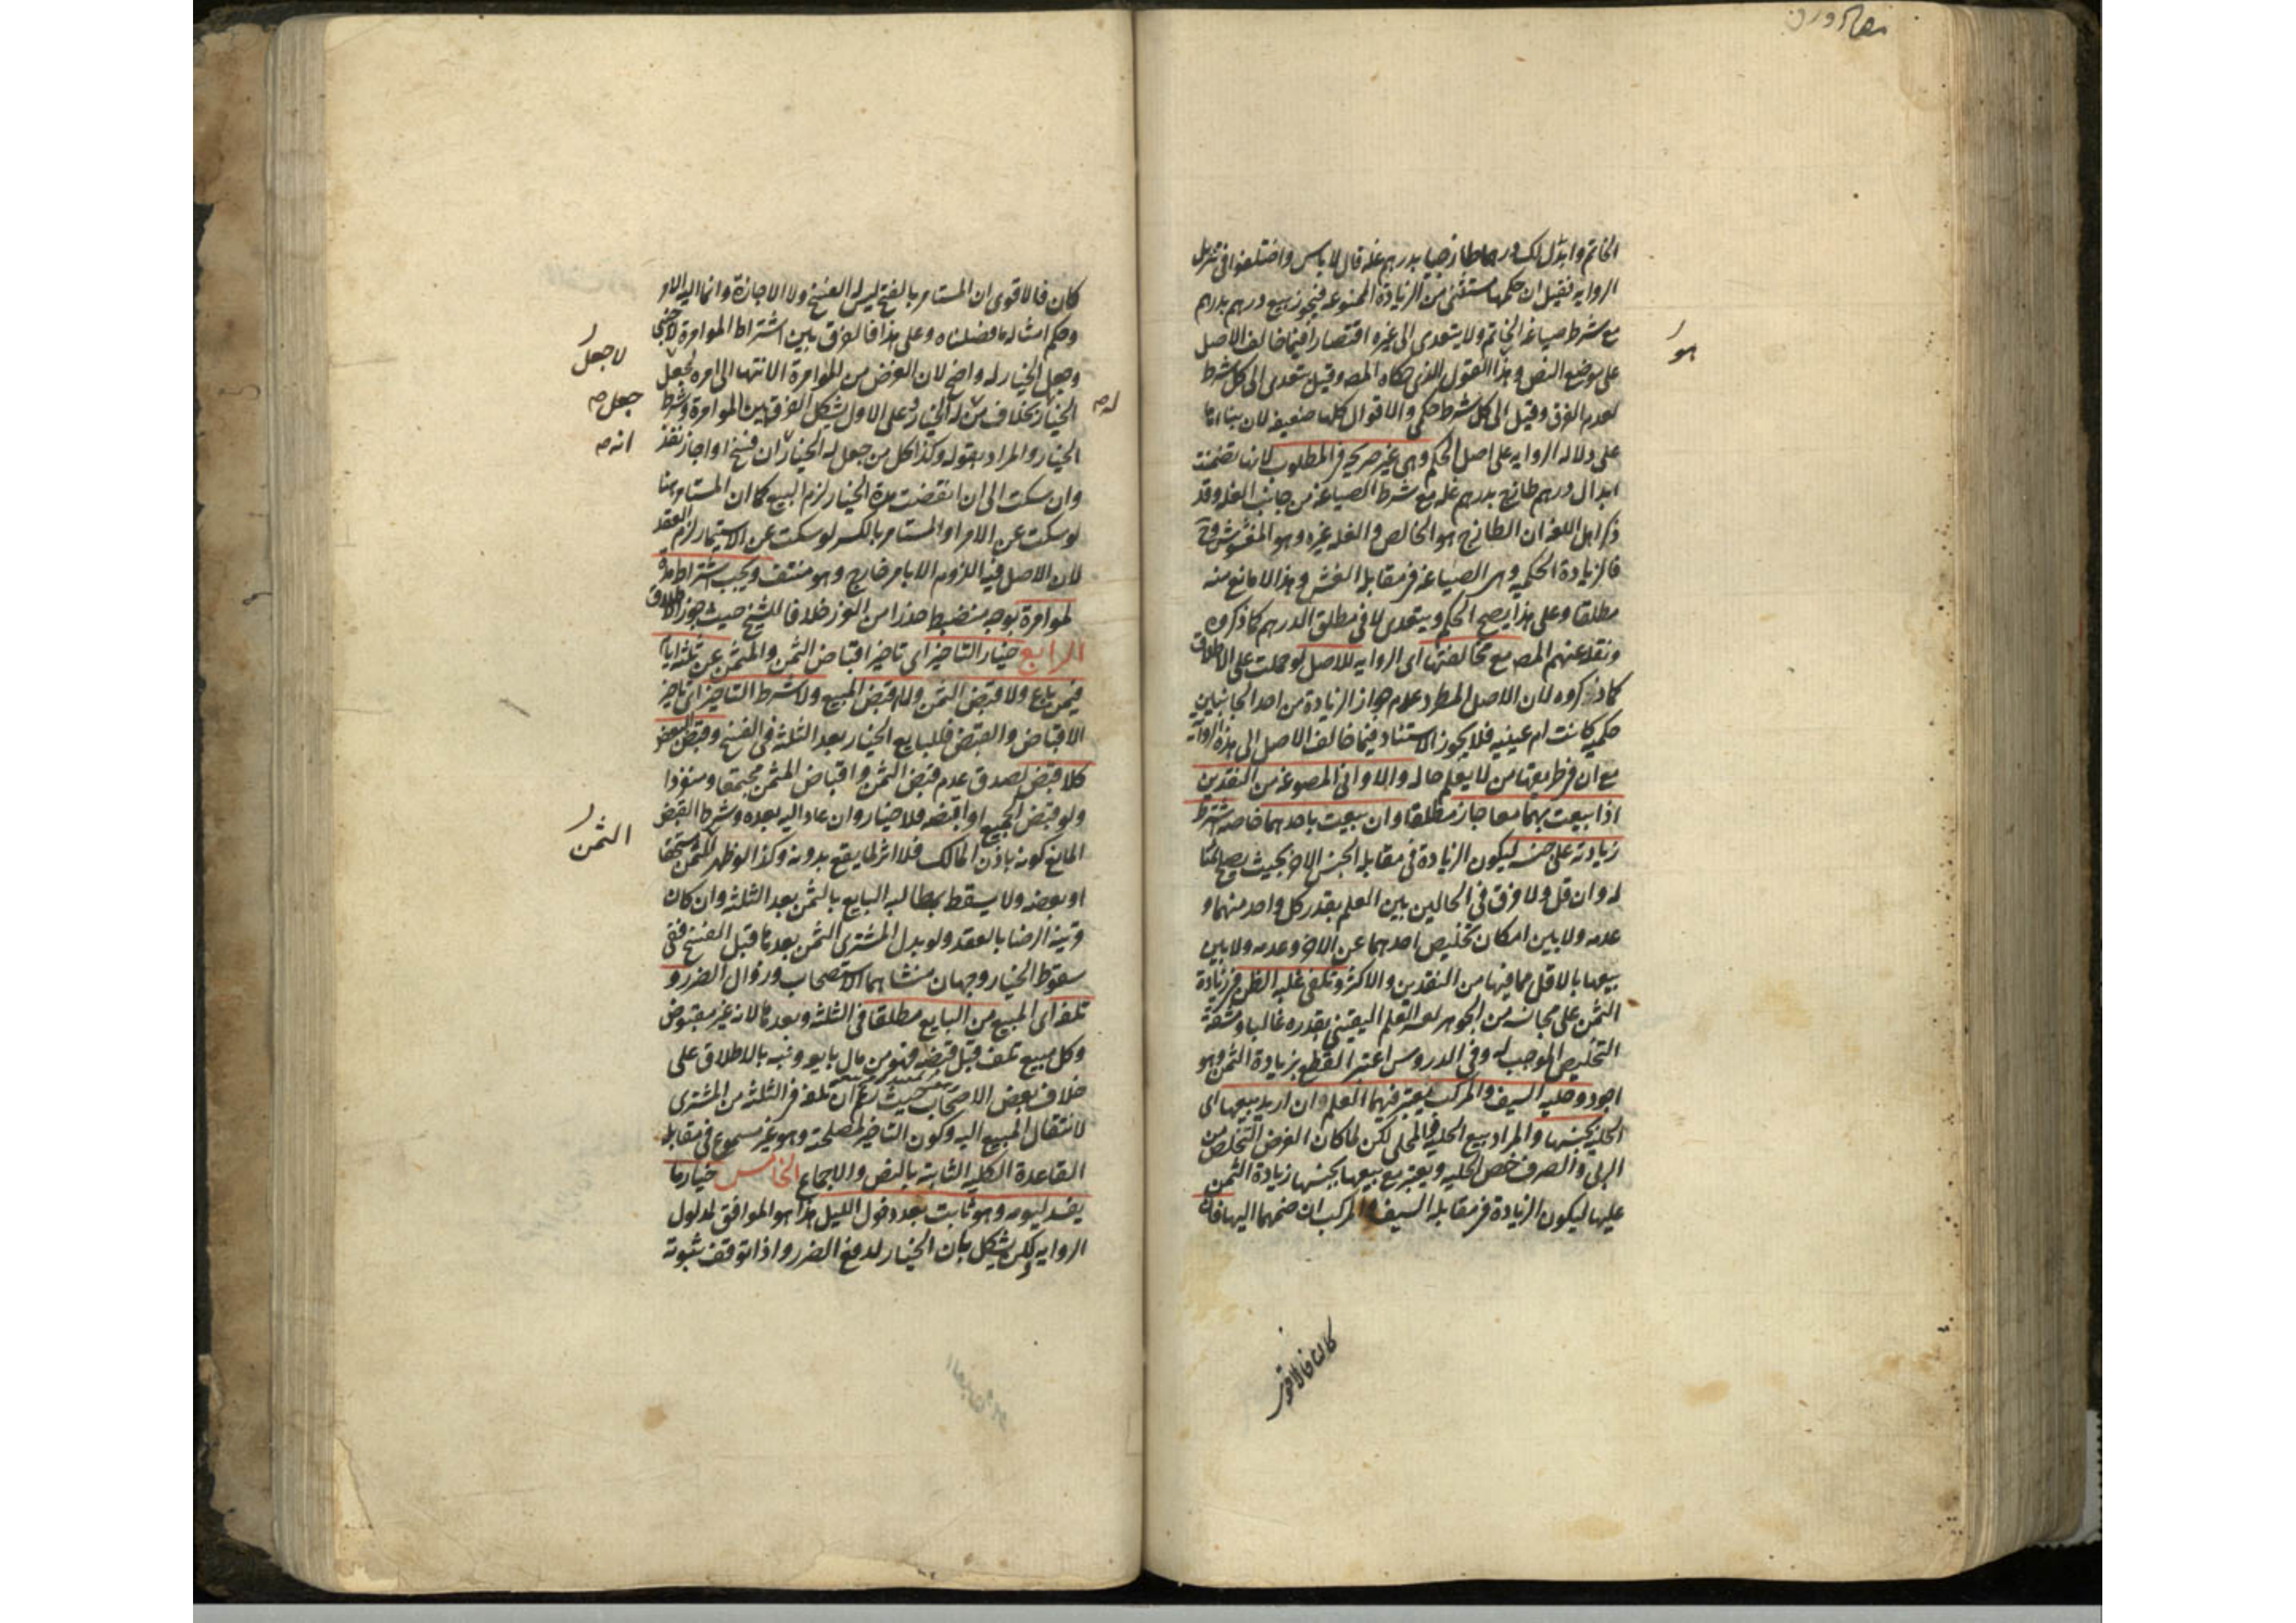 الخاتم وابدل لك درهما طازجيا بدرهم غله قال لا باس واختلفوا فى تنزيل
الروايه فقيل ان حكمها مستثنى من الزيادة الممنوعه فيجوز بيع درهم بدرهم
مع شرط صياغه الخاتم ولا يتعدى الى غيره اقتصارا فيما خالف الاصل
على موضع النص وهذا القول الذى حكاه المصه وقيل يتعدى الى كل شرط
لعدم الفرق وقيل الى كل شرط حكمى والاقوال كلها ضعيفه لان بناءها
على دلاله الروايه على اصل الحكم وهى غير صريحه فى المطلوب لانها تضمنت
ابدال درهم طازج بدرهم غله مع شرط الصياغه من جانب الغله وقد
ذكر اهل اللغه ان الطازج هو الخالص والغله غيره وهو المغشوش وح
فالزيادة الحكميه وهى الصياغه فى مقابله الغش وهذا لا مانع منه
مطلقا وعلى هذا يصح الحكم ويتعدى لا فى مطلق الدرهم كما ذكروه
ونقله عنهم المصه مع مخالفتها اى الروايه للاصل لو حملت على الاطلاق
كما ذكروه لان الاصل المطرد عدم جواز الزيادة من احد الجانبين
حكميه كانت ام عينيه فلا يجوز الاستناد فيما خالف الاصل الى هذه الروايه
مع ان فى طريقها من لا يعلم حاله والاوانى المصوغه من النقدين
اذا بيعت بهما معا جاز مطلقا وان بيعت باحدهما خاصه اشترط
زيادته على جنسه ليكون الزيادة فى مقابله الجنس الاخر بحيث يصلح ثمنا
له وان قل ولا فرق فى الحالين بين العلم بقدر كل واحد منهما و
عدمه ولا بين امكان تخليص احدهما عن الاخر وعدمه ولا بين
بيعها بالاقل مما فيها من النقدين والاكثر وتكفى غلبه الظن فى زيادة
الثمن على مجانسه من الجوهر لعسر العلم اليقينى بقدره غالبا ومشقة
التخليص الموجب له وفى الدروس اعتبر القطع بزيادة الثمن وهو
اجود وحليه السيف والمركب يعتبر فيهما العلم وان اريد بيعها اى
الحليه بجنسها والمراد بيع الحليه والمحلى لكن لما كان الغرض التخلص من
الربا والصرف خص الحليه ويعتبر مع بيعها بجنسها زيادة الثمن
عليها ليكون الزيادة فى مقابله السيف والمركب ان ضمهما اليها فان
هو
كانا فالاقوى
كان فالاقوى ان المستامر بالفتح ليس له الفسخ ولا الاجازة وانما اليه الامر
وحكم امتثاله ما فصلناه وعلى هذا فالفرق بين اشتراط الموامرة لاجنبى
وجعل الخيار له واضح لان الغرض من الموامرة الانتها الى امره لجعل
الخيار بخلاف من له الخيار وعلى الاول يشكل الفرق بين الموامرة وشرط
الخيار والمراد بقوله وكذا كل من جعل له الخيار ان فسخ او اجاز نفذ
وان سكت الى ان انقضت مدة الخيار لزم البيع كما ان المستامر هنا
لو سكت عن الامر او المستامر بالكسر لو سكت عن الاستيمار لزم العقد
لان الاصل فيه اللزوم الا بامر خارج وهو منتف ويجب اشتراط مدة
لموامرة بوجه منضبط حذرا من الغرر خلافا للشيخ حيث جوز الاطلاق
الرابع خيار التاخير اى تاخير اقباض الثمن والمثمن عن ثلثه ايام
فيمن باع ولا قبض الثمن ولا اقبض المبيع ولا شرط التاخير اى تاخير
الاقباض والقبض فللبايع الخيار بعد الثلثه فى الفسخ وقبض البعض
كلا قبض لصدق عدم قبض الثمن واقباض المثمن مجتمعا ومنفردا
ولو قبض الجميع او اقبضه فلا خيار وان عاد اليه بعده وشرط القبض
المانع كونه باذن المالك فلا اثر لما يقع بدونه وكذا لو ظهر الثمن مستحقا
او بعضه ولا يسقط بمطالبه البايع بالثمن بعد الثلثه وان كان
قرينه الرضا بالعقد ولو بذل المشترى الثمن بعدها قبل الفسخ ففى
سقوط الخيار وجهان منشاهما الاستصحاب وزوال الضرر و
تلفه اى المبيع من البايع مطلقا فى الثلثه وبعدها لانه غير مقبوض
وكل مبيع تلف قبل قبضه فهو من مال بايعه ونبه بالاطلاق على
خلاف بعض الاصحاب حيث زعم ان تلفه فى الثلثه من المشترى
لانتقال المبيع اليه وكون التاخير لمصلحته وهو غير مسموع فى مقابله
القاعدة الكليه الثابته بالنص والاجماع الخامس خيار ما
يفسد ليومه وهو ثابت بعد دخول الليل هذا هو الموافق لمدلول
الروايه لكن يشكل بان الخيار لدفع الضرر واذا توقف ثبوته
له صه
لا جعل
جعل صه
انه صه
الثمن